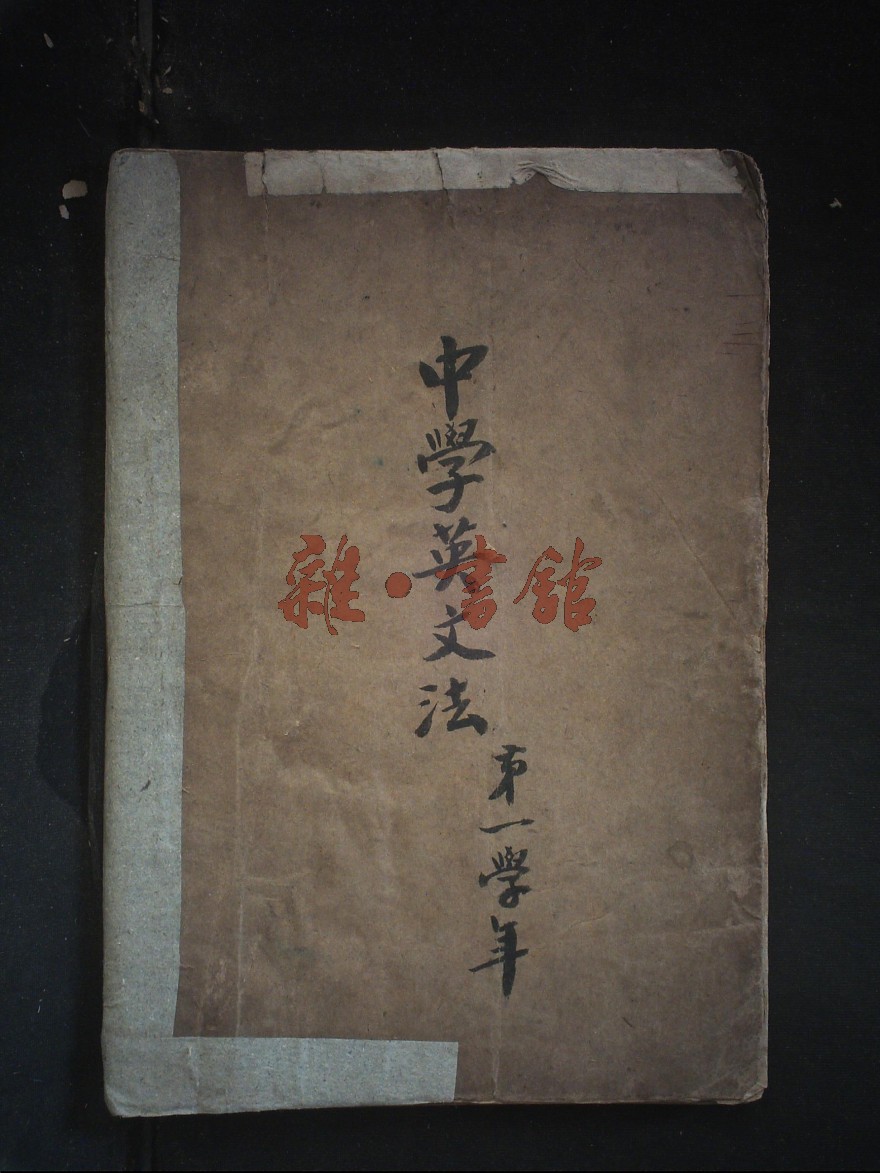 中學英文法
第一學年
雜·書館